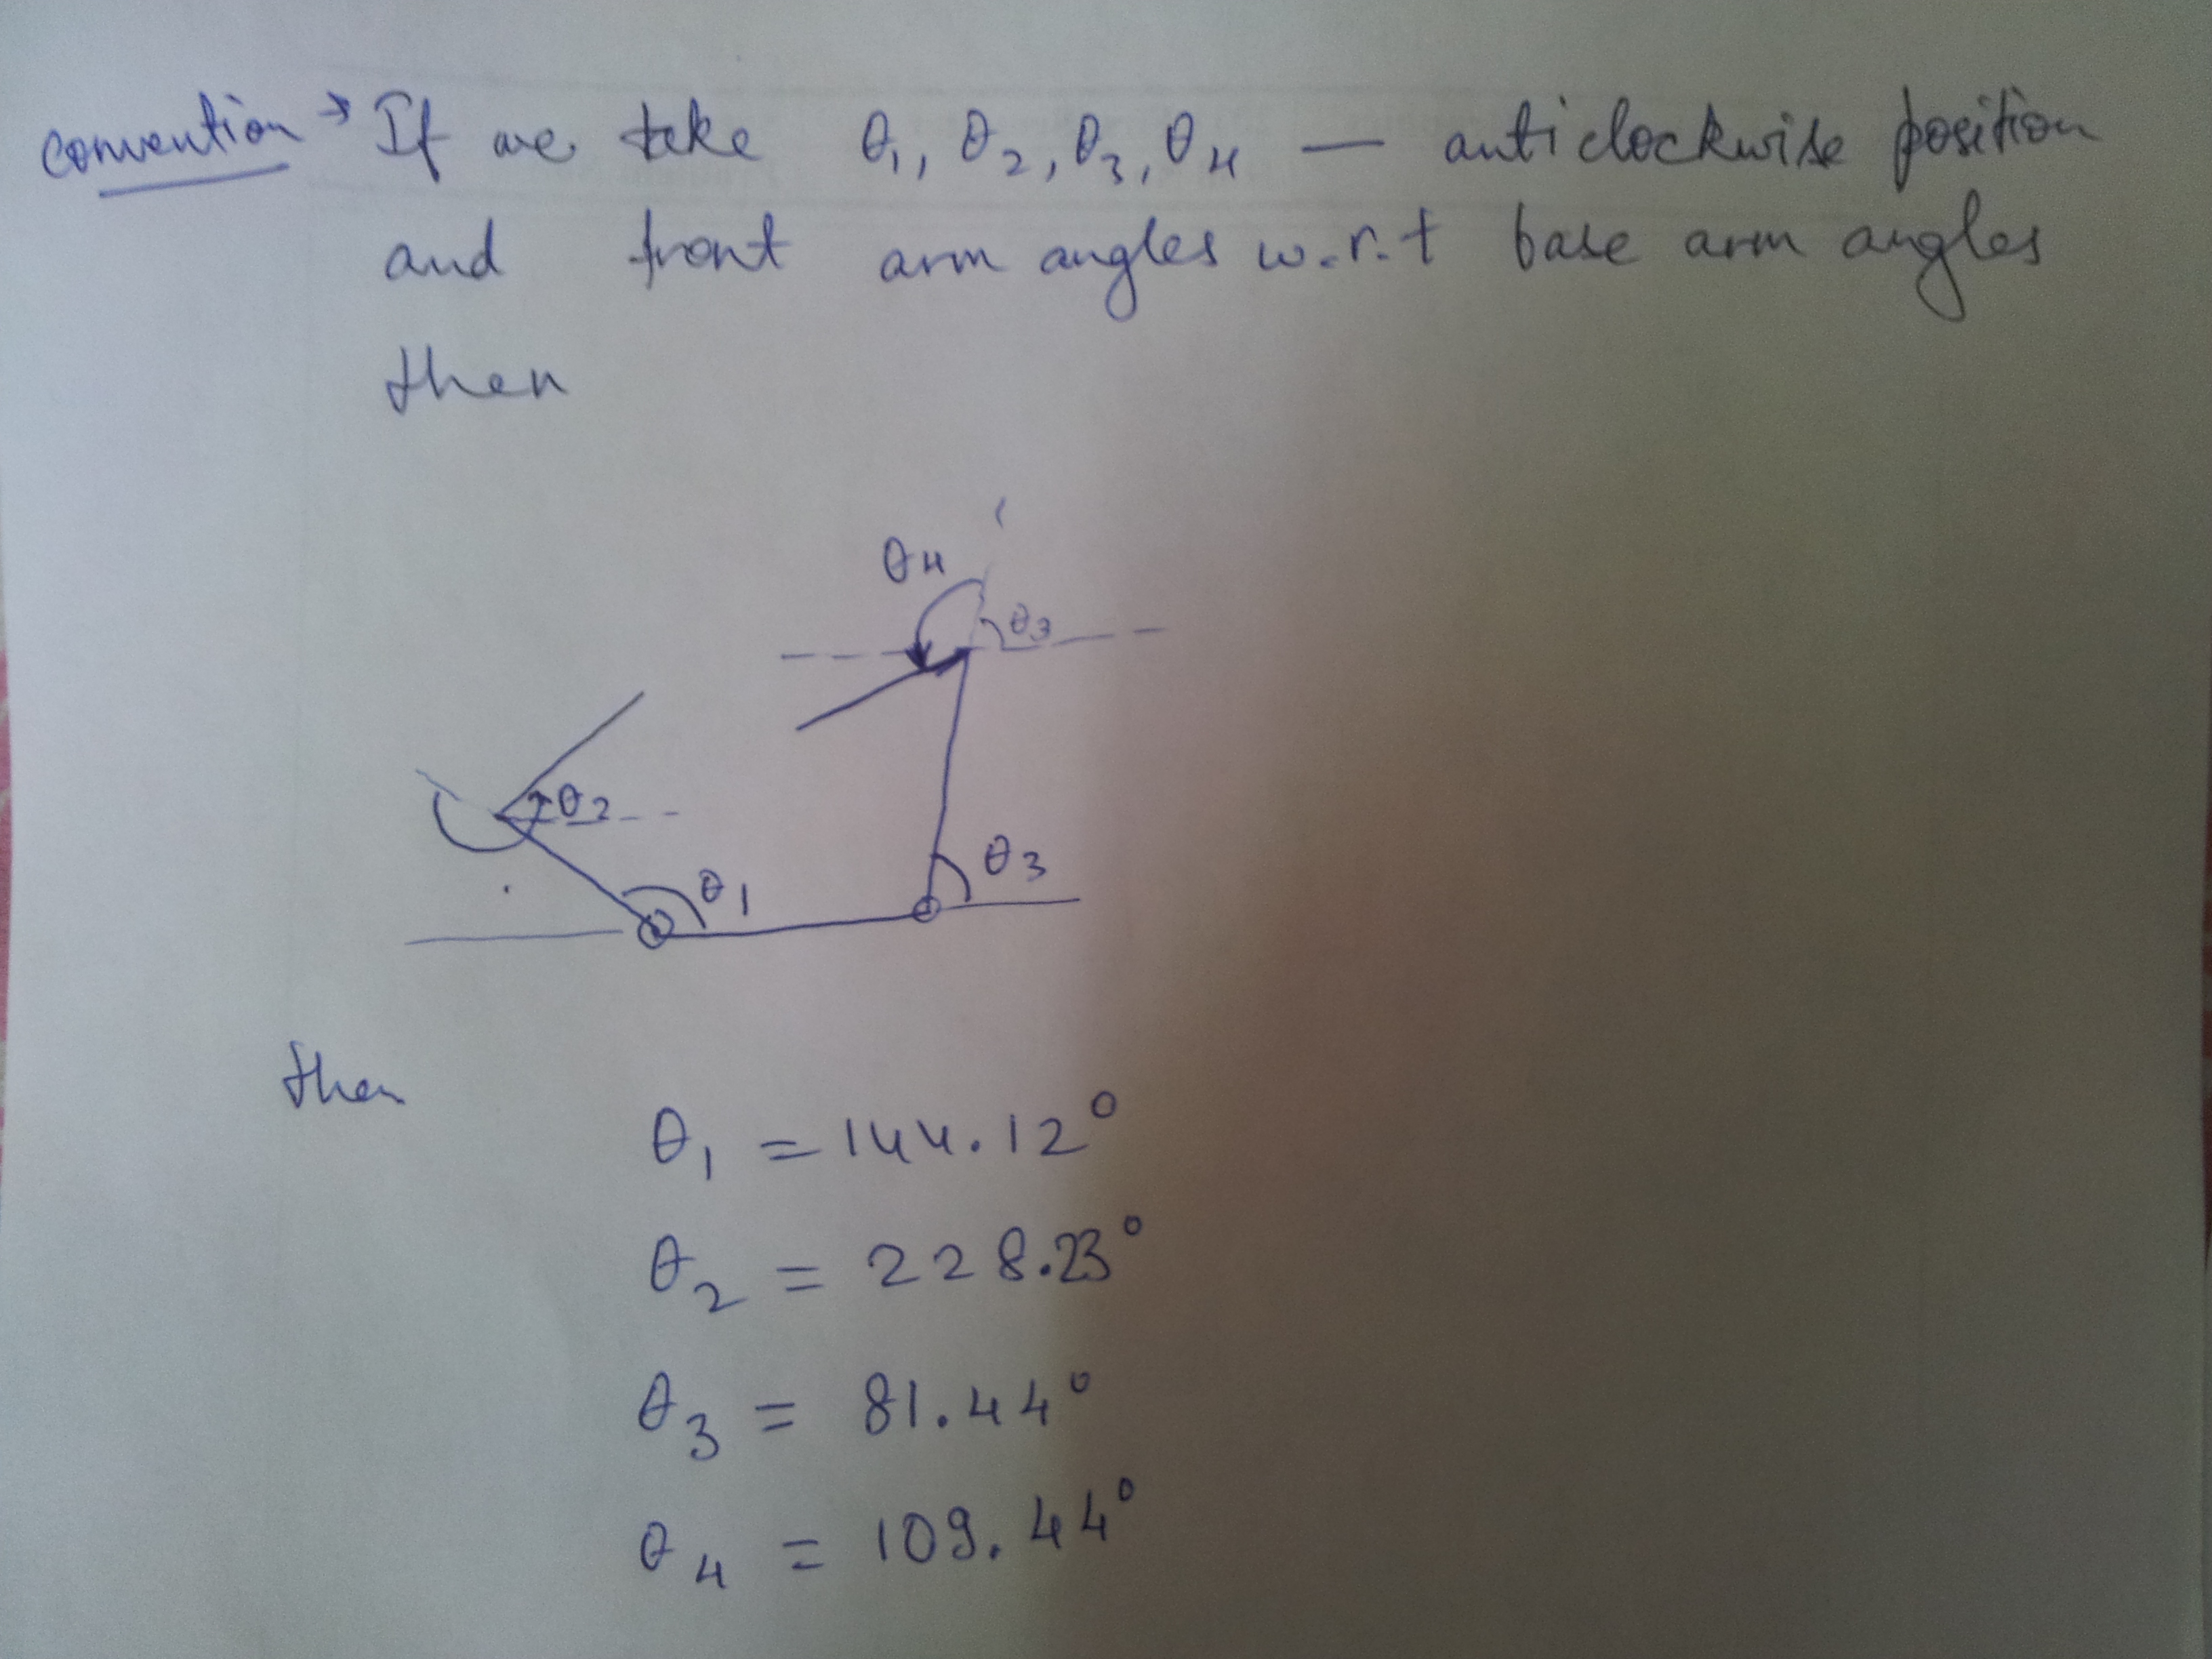 convention → If we take θ1, θ2, θ3, θ4 — anticlockwise position
and front arm angles w.r.t base arm angles
then
θ4
θ3
θ2
θ3
θ1
then
θ1 = 144.12°
θ2 = 228.23°
θ3 = 81.44°
θ4 = 109.44°